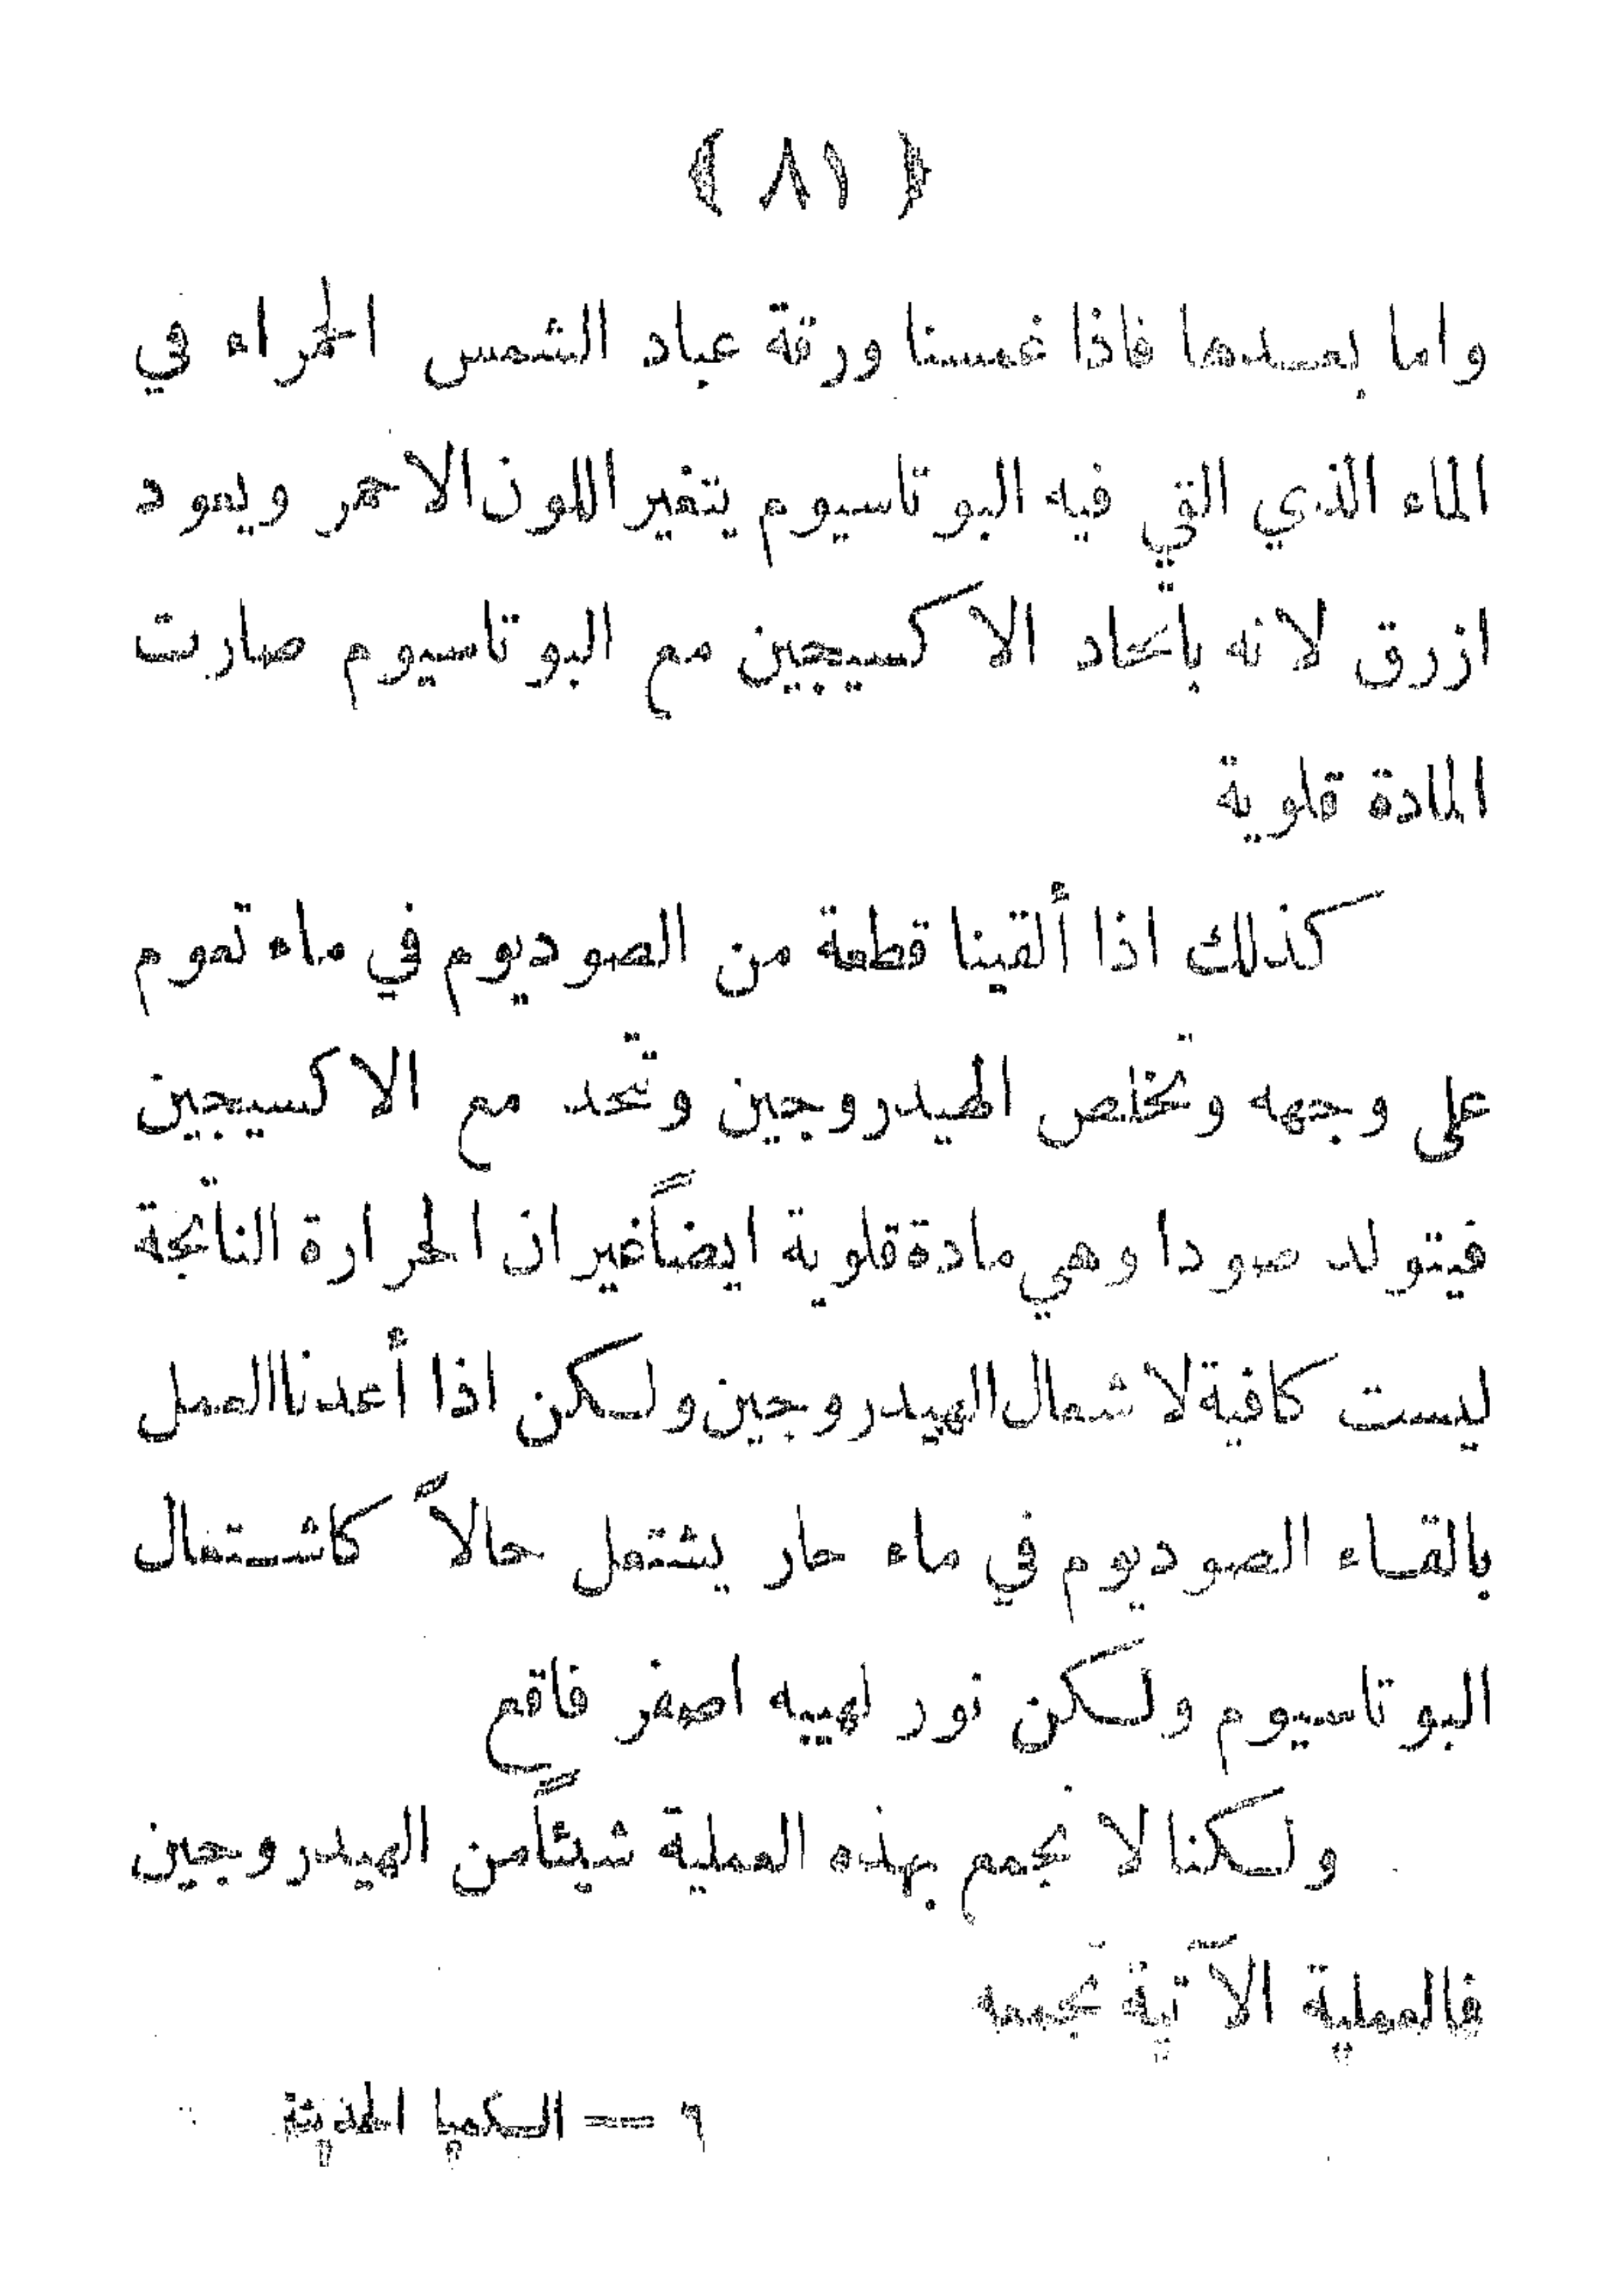 ﴿ ٨١ ﴾
واما بعدها فاذا غمسنا ورقة عباد الشمس الحمراء في
الماء الذي القي فيه البوتاسيوم يتغير اللون الاحمر ويعود
ازرق لانه باتحاد الاكسيجين مع البوتاسيوم صارت
المادة قلوية
كذلك اذا ألقينا قطعة من الصوديوم في ماء تعوم
على وجهه وتخلص الهيدروجين وتتحد مع الاكسيجين
فيتولد صودا وهي مادة قلوية ايضاً غير ان الحرارة الناتجة
ليست كافية لاشعال الهيدروجين ولكن اذا أعدنا العمل
بالقاء الصوديوم في ماء حار يشتعل حالاً كاشتعال
البوتاسيوم ولكن نور لهيبه اصفر فاقع
ولكننا لا نجمع بهذه العملية شيئاً من الهيدروجين
فالعملية الآتية تجمعه
٦ — الكميا الحديثة